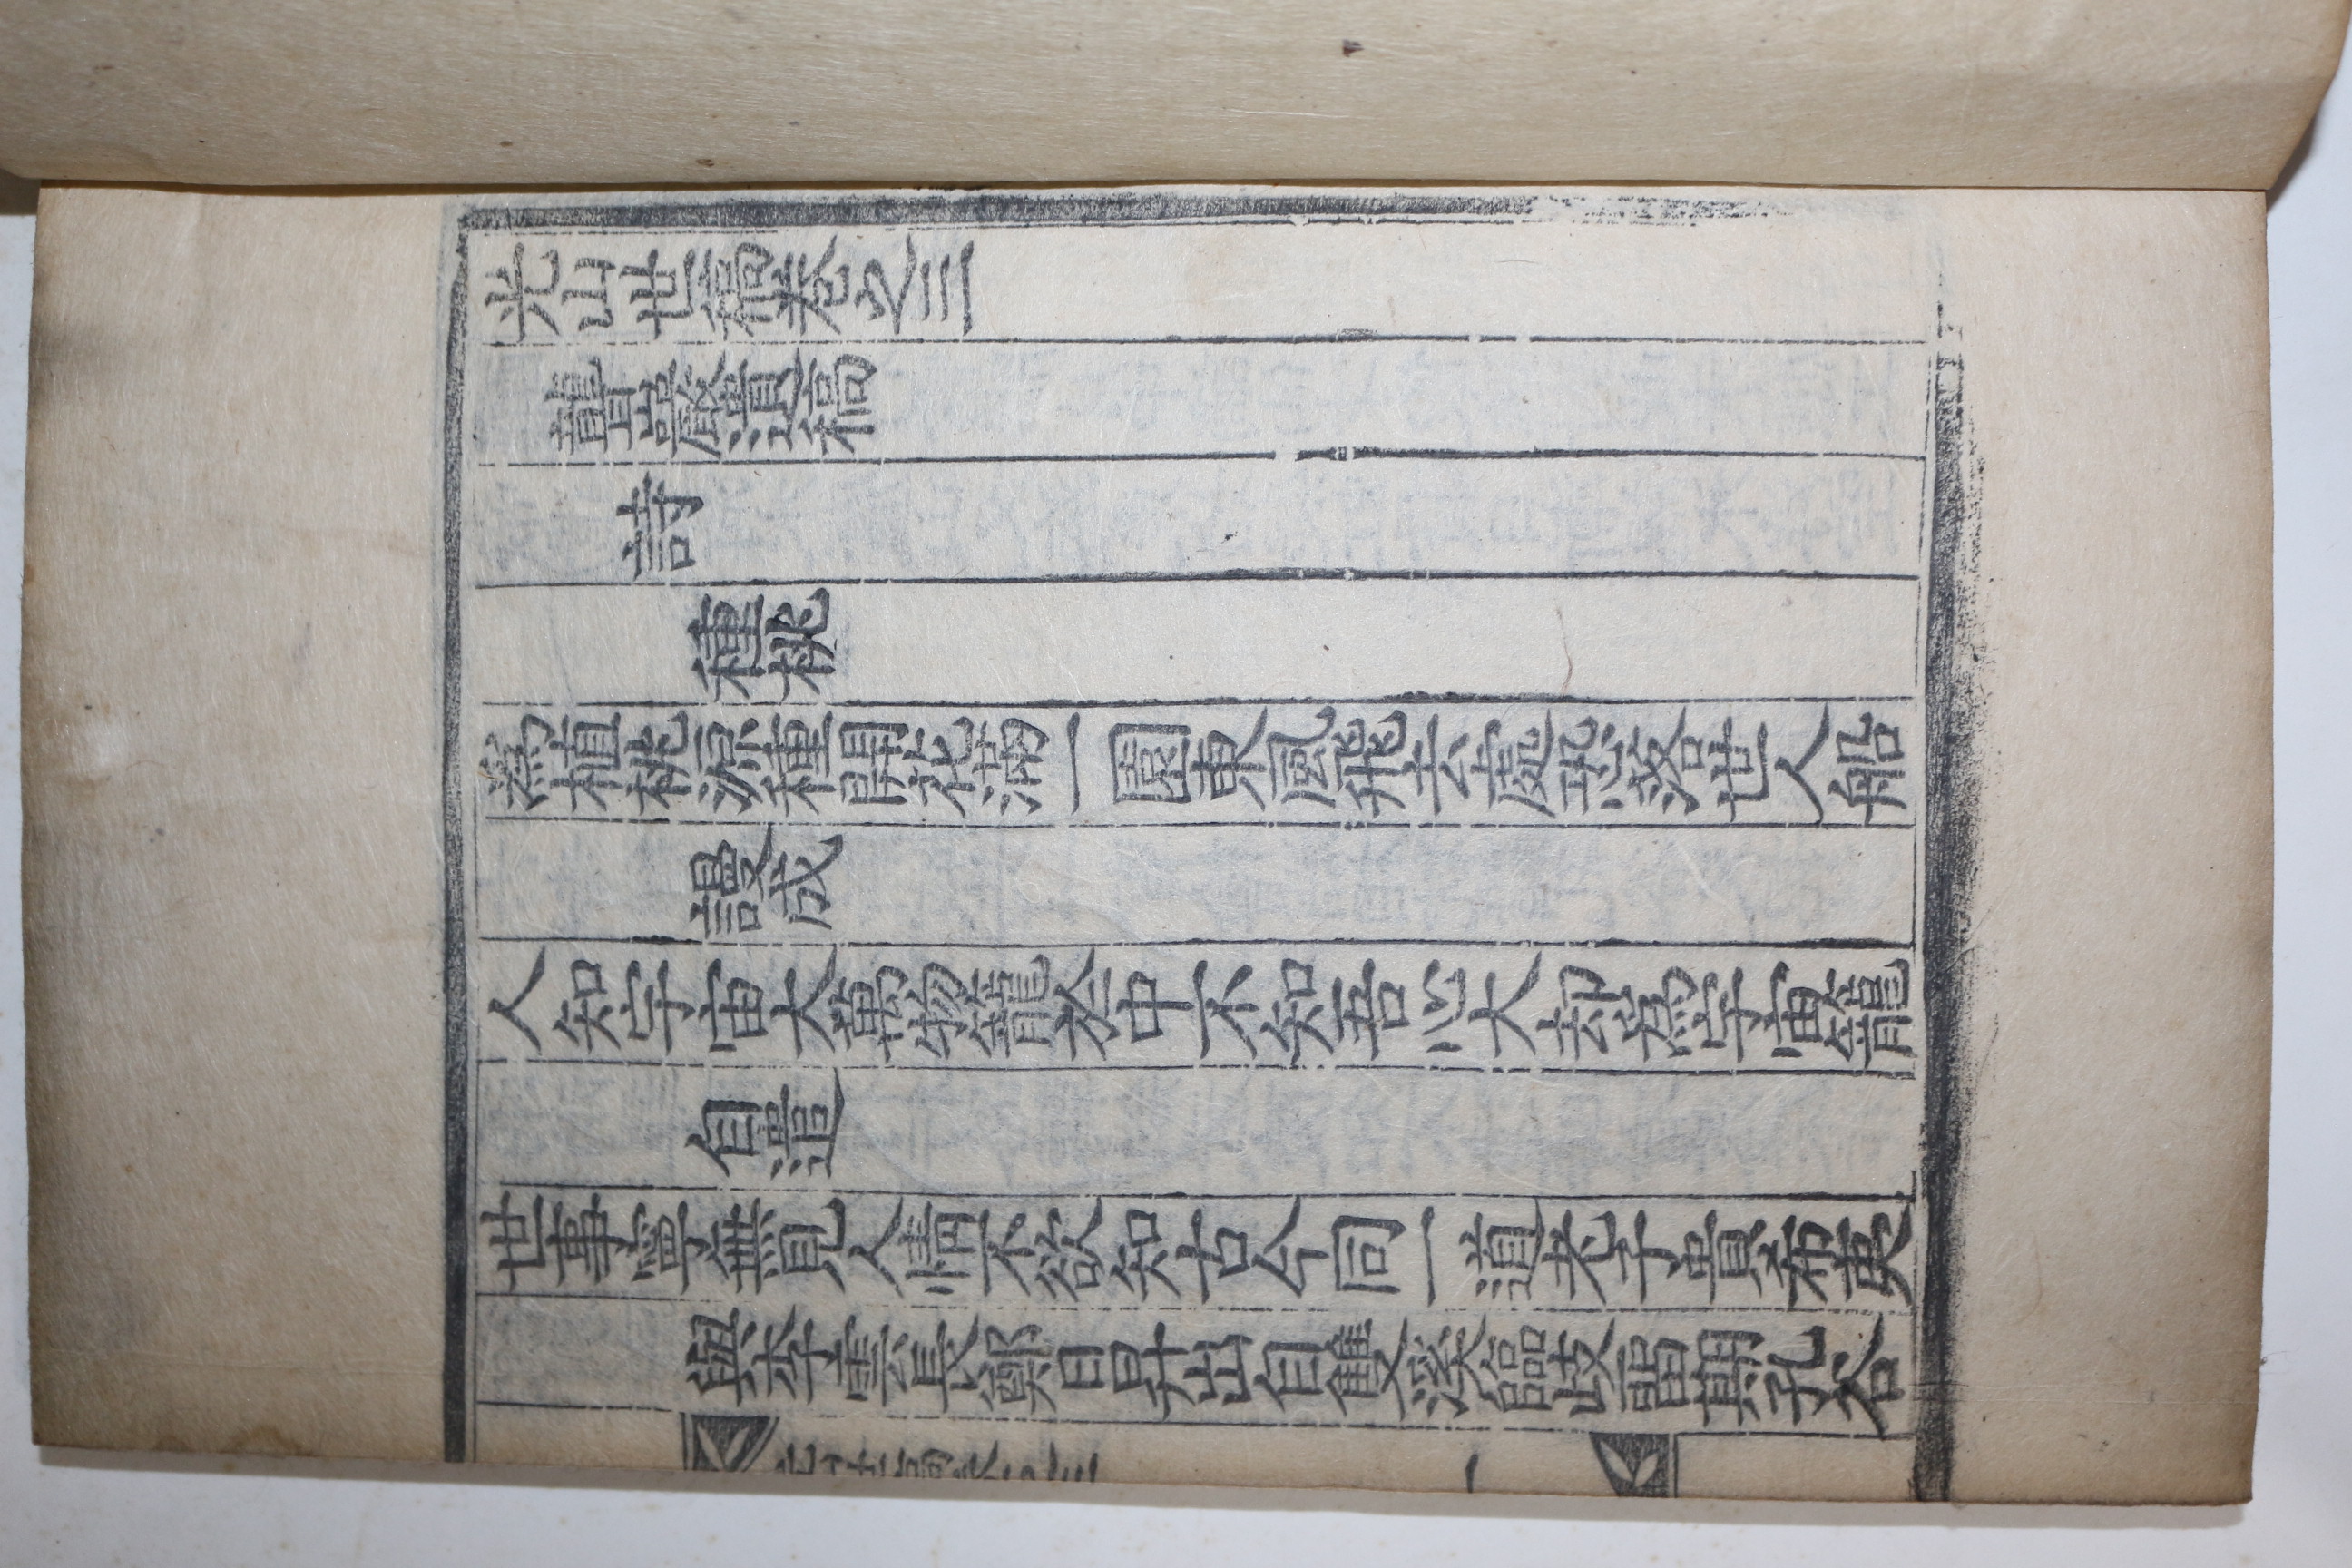 光山世稿卷之三
聾巖遺稿
詩
種桃
爲植桃源種開花滿一園東風飛去處恐落世人船
謾成
人知宇宙大萬物籠於中不知吾心大却爲宇宙籠
自遣
世事寧無見人情不欲知古今同一道老子貴希夷
與李雲長鄭日昇出自雙溪臨歧畱期孔谷
光山世稿卷之三
一